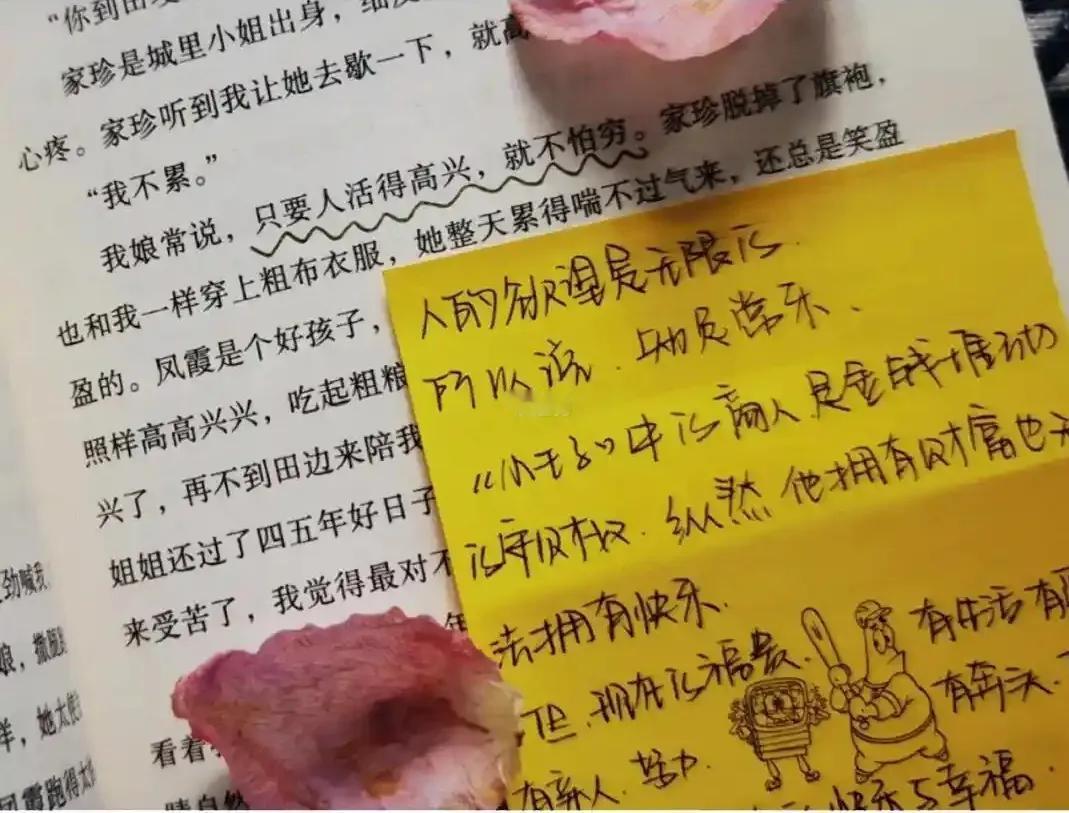 “你到田
家珍是城里小姐出身，细皮
心疼。家珍听到我让她去歇一下，就高
“我不累。”
我娘常说，只要人活得高兴，就不怕穷。家珍脱掉了旗袍，
也和我一样穿上粗布衣服，她整天累得喘不过气来，还总是笑盈
盈的。凤霞是个好孩子，
照样高高兴兴，吃起粗粮
兴了，再不到田边来陪我
姐姐还过了四五年好日子
来受苦了，我觉得最对不
年
看着
睛自然
劲喊我
娘，撒腿
样，她太
凤霞跑得太
人的欲望是无限的.
所以说.知足常乐.
《小王子》中的商人是金钱堆砌
的守财奴.纵然他拥有财富也无
法拥有快乐.
但.现在的福贵.有生活有
有亲人.努力.有奔头.
快乐与幸福.